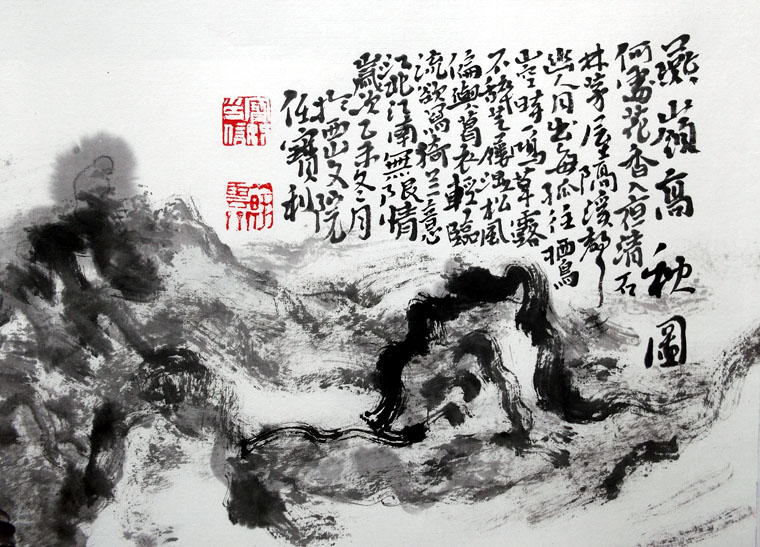 燕山嶺高秋圖
何處花香入夜清石
林茅屋隔溪聲
幽人月出每孤往栖鳥
山空時一鳴草露
不辞芒屨濕松風
偏與葛衣輕臨
流欲寫猗兰意
江北江南無限情
歲次乙未冬月
於西山文院
任寶利